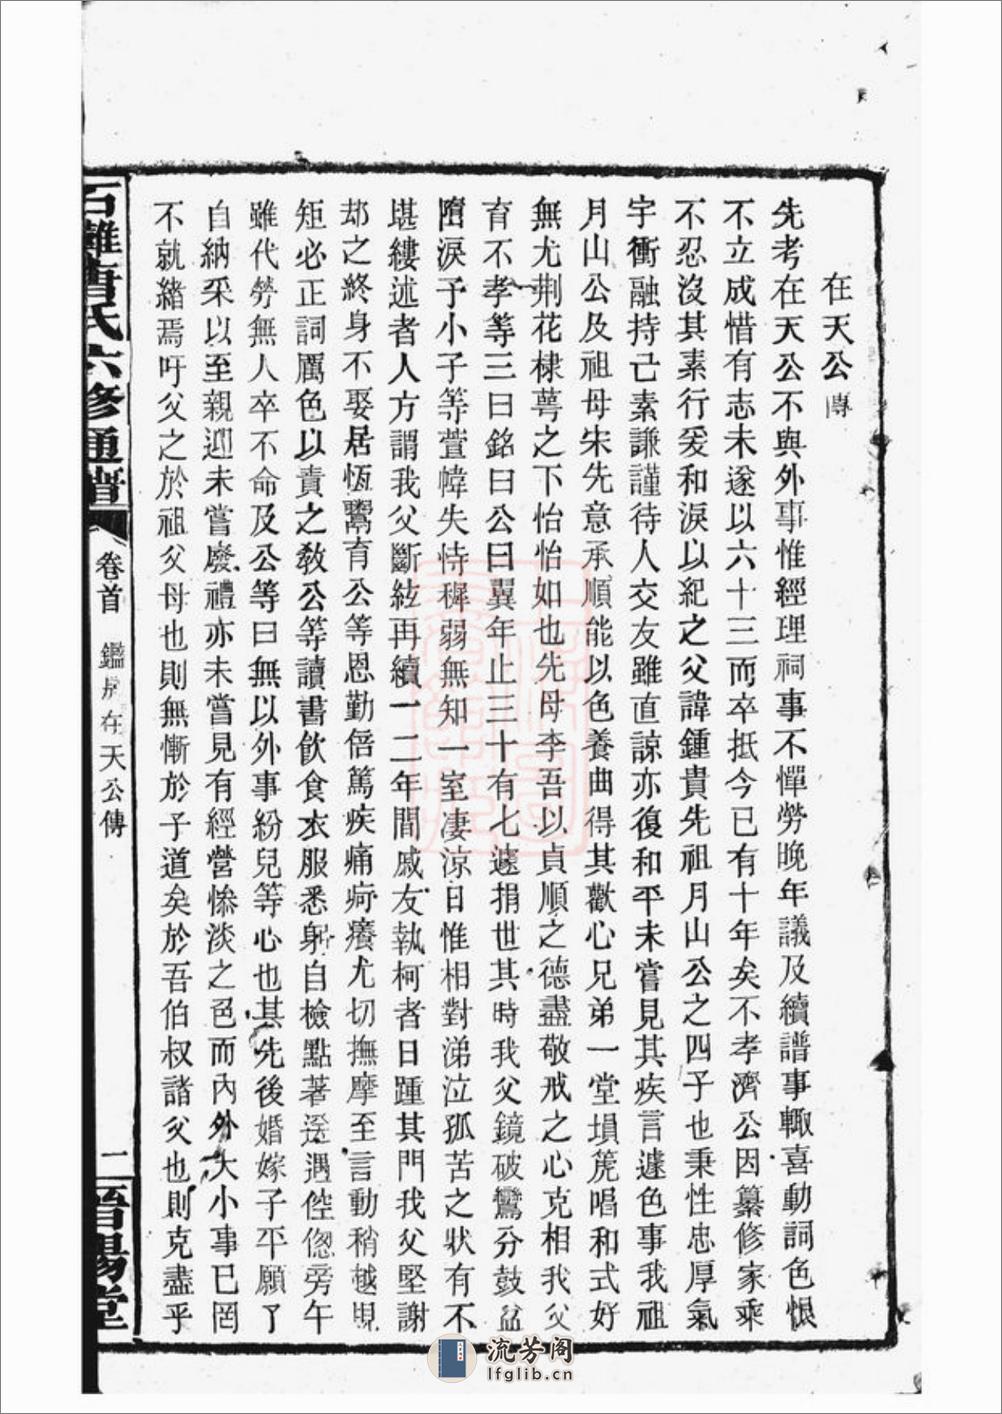 在天公傳
先考在天公不與外事惟經理祠事不憚勞晚年議及續譜事輙喜動詞色恨
不立成惜有志未遂以六十三而卒抵今已有十年矣不孝濟公因纂修家乘
不忍沒其素行爰和淚以紀之父諱鍾貴先祖月山公之四子也秉性忠厚氣
宇衝融持己素謙謹待人交友雖直諒亦復和平未嘗見其疾言遽色事我祖
月山公及祖母宋先意承順能以色養曲得其歡心兄弟一堂塤箎唱和式好
無尤荆花棣萼之下怡怡如也先母李吾以貞順之德盡敬戒之心克相我父
育不孝等三曰銘曰公曰翼年止三十有七遽捐世其時我父鏡破鸞分鼓盆
墮淚予小子等萱幃失恃穉弱無知一室凄凉日惟相對涕泣孤苦之狀有不
堪縷述者人方謂我父斷絃再續一二年間戚友執柯者日踵其門我父堅謝
却之終身不娶居恆鬻育公等恩勤倍篤疾痛疴癢尤切撫摩至言動稍越規
矩必正詞厲色以責之教公等讀書飲食衣服悉躬自檢點著遝遇倥偬旁午
雖代勞無人卒不命及公等曰無以外事紛兒等心也其先後婚嫁子平願了
自納采以至親迎未嘗廢禮亦未嘗見有經營慘淡之色而內外大小事已罔
不就緒焉吁父之於祖父母也則無慚於子道矣於吾伯叔諸父也則克盡乎
石灘唐氏六修通譜
卷首
在天公傳
二
晋陽堂
流芳阁
lfglib.cn